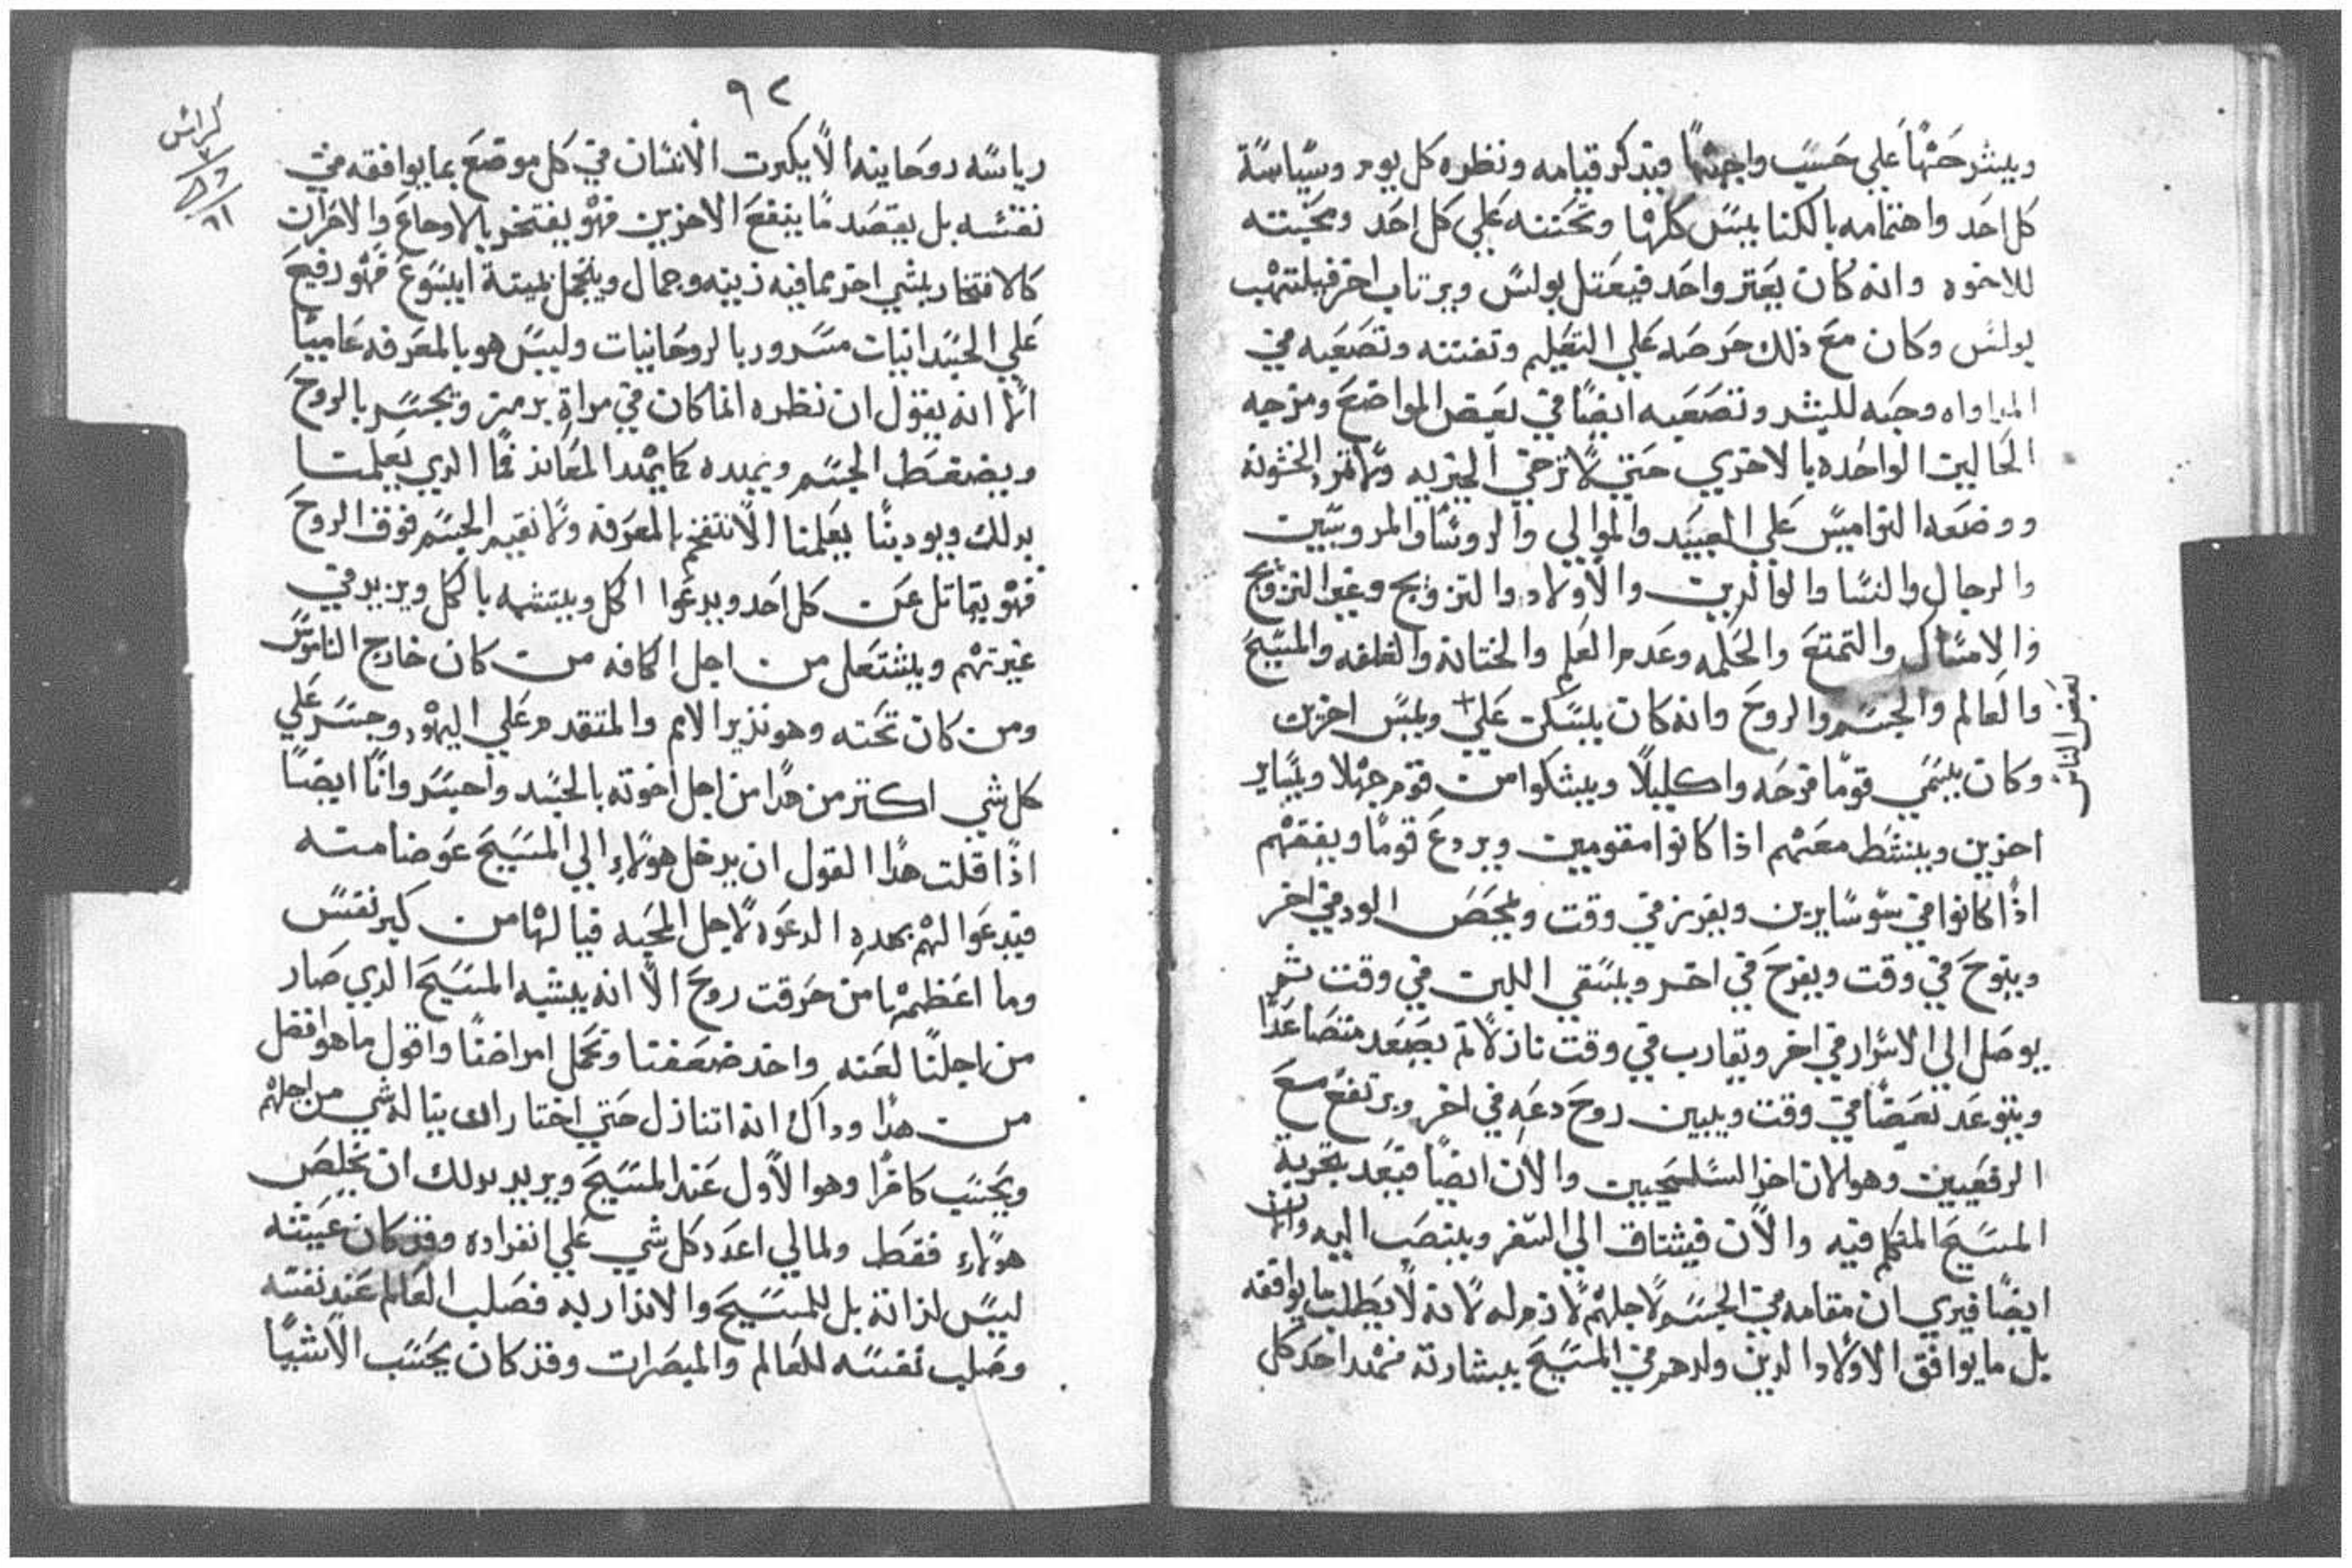 ويشرحها علي حسب واجبها فيدكر قيامه ونظره كل يوم وسياسة
كل احد واهتمامه بالكنايس كلها وتحننه علي كل احد ومحبته
للاخوه وانه كان يعتر واحد فيعتل بولس ويرتاب اخر فيلتهب
بولس وكان مع ذلك حرصه علي التعليم وتفننه وتصعبه في
المداواه وحبه للبشر وتصعبه ايضا في بعض المواضع ومزجه
الحاليين الواحده بالاخري حتي لا ترخي الخيريه ولا تمرر الخشونه
ووضعه النواميس علي العبيد والموالي والروسا والمروسين
والرجال والنسا والوالدين والاولاد والتزويج وغير التزويج
والامساك والتمتع والحكمه وعدم العلم والختانه والغلفه والمسيح
والعالم والجسم والروح وانه كان يسكن علي + ويلبس اخرين
بعض الناس
وكان يسمي قوما فرحه واكليلا ويشكوا من قوم جهلا ويساير
اخرين وينشط معهم اذا كانوا مقومين ويردع قوما ويفقهم
اذا كانوا في سو سايرين ويفرز في وقت ويمحص الود في اخر
وينوح في وقت ويفرح في اخر ويسقي اللبن في وقت ثم
يوصل الي الاسرار في اخر ويقارب في وقت نازلا ثم يصعد متصاعدا
ويتوعد بعصا في وقت ويبين روح دعه في اخر ويرتفع مع
الرفعيين وهو الان اخر السلسحيين والان ايضا فيعد بتجربة
المسيح المتكلم فيه والان فيشتاق الي السفر وينتصب اليه والان
ايضا فيري ان مقامه في الجسم لاجلهم لازم له لانه لا يطلب ما يوافقه
بل ما يوافق الاولاد الدين ولدهم في المسيح ببشارته فهدا حد كل
٩٢
كراس
رياسه روحانيه الا يكرت الانسان في كل موضع بما يوافقه في
نفسه بل يقصد ما ينفع الاخرين فهو يفتخر بالاوجاع والاحزان
كالافتخار بشي اخر مما فيه زينه وجمال ويتجمل بميتة ايسوع فهو رفيع
علي الجسدانيات مسرور بالروحانيات وليس هو بالمعرفه عاميا
الا انه يقول ان نظره انما كان في مراة برمز ويجسر بالروح
ويضغط الجسم ويميده كما يهد المعاند فما الدي يعلمنا
بدلك ويودبنا يعلمنا الا ننتفخ بالمعرفه ولا نقيم الجسم فوق الروح
فهو يقاتل عن كل احد ويدعوا الكل ويتشبه بالكل ويزيد في
غيرتهم ويشتعل من اجل الكافه من كان خارج الناموس
ومن كان تحته وهو نذير الامم والمتقدم علي اليهود وجسر علي
كل شي اكتر من هدا من اجل اخوته بالجسد واجسر وانا ايضا
اذا قلت هدا القول ان يدخل هولاء الي المسيح عوضا منه
فيدعوا لهم بهده الدعوه لاجل المحبه فيا لها من كبر نفس
وما اعظمها من حرقت روح الا انه يشبه المسيح الدي صار
من اجلنا لعنه واخد ضعفنا وتحمل امراضنا واقول ما هو افضل
من هدا وداك انه اتنازل حتي اختار ان يناله شي من اجلهم
ويحسب كافرا وهو الاول عند المسيح ويريد بدلك ان يخلص
هولاء فقط ولما لي اعدد كل شي علي انفراده وقد كان عيشته
ليس لذاته بل للمسيح والانذار به فصلب العالم عند نفسه
وصلب نفسه للعالم والمبصرات وقد كان يحسب الاشيا